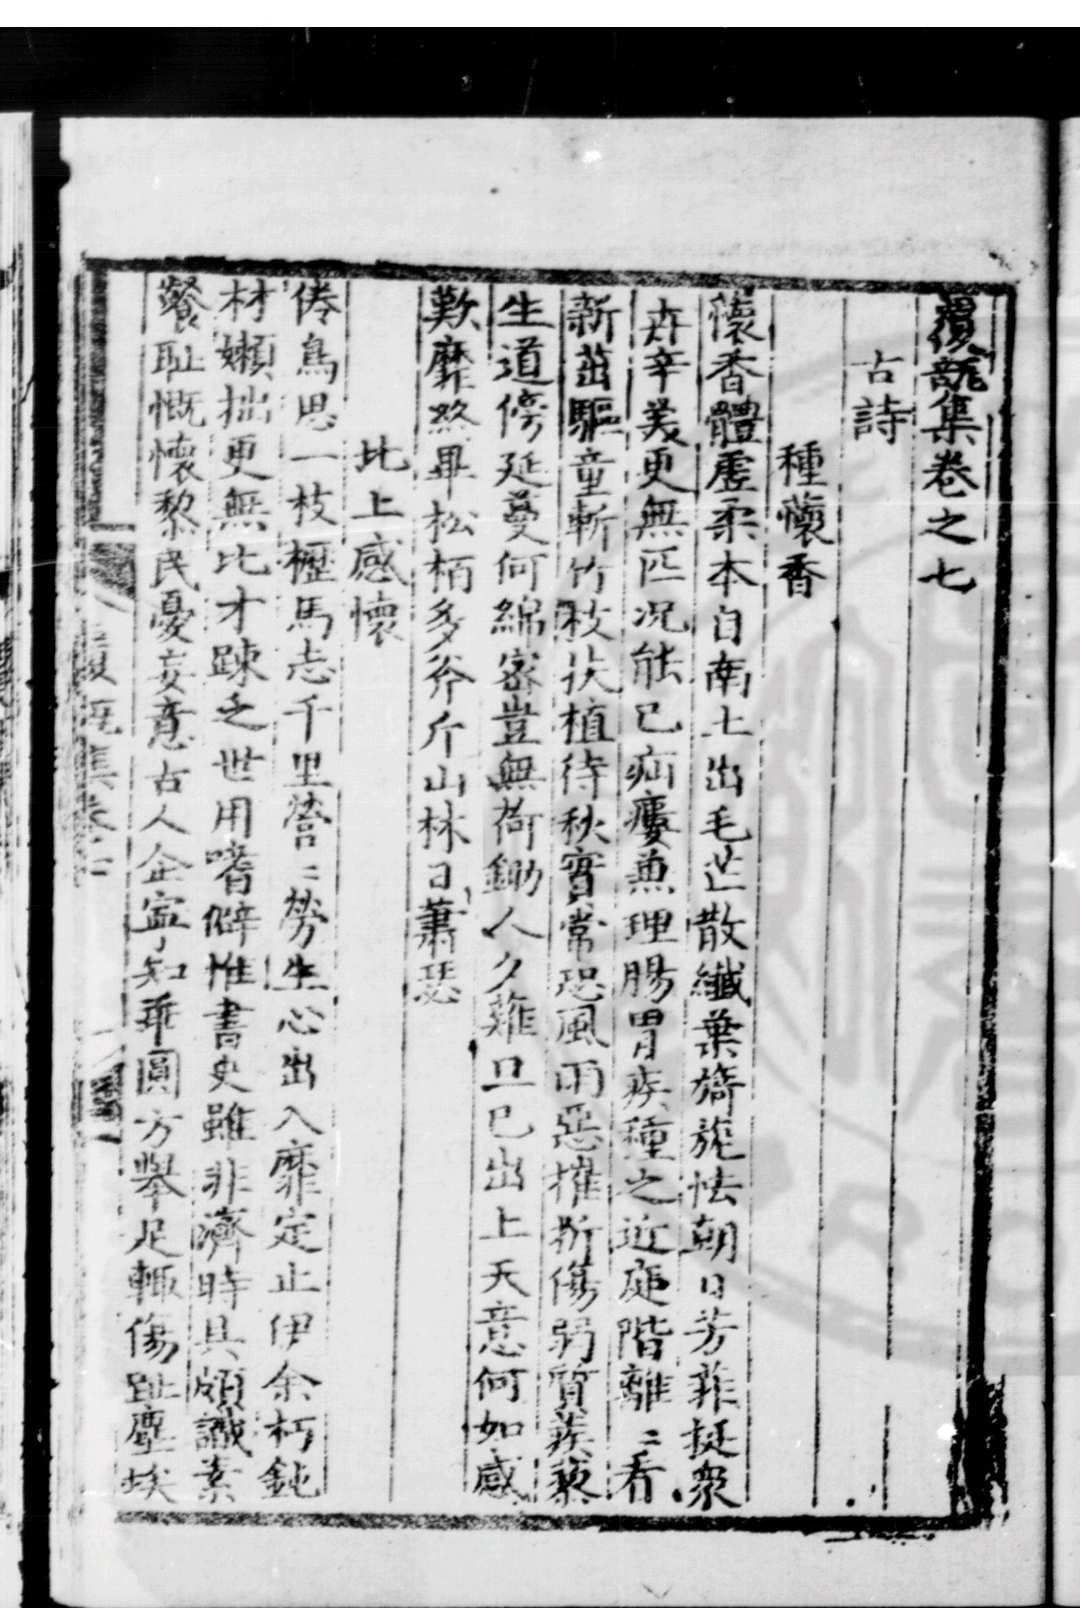 覆瓿集卷之七
古詩
種懷香
懷香體虛柔本自南土出毛芒散纖葉旖旎怯朝日芳菲挺衆
卉辛美更無匹况能已疝㿔兼理腸胃疾種之近庭階離〻看
新茁驅童斬竹枝扶植待秋實常恐風雨惡摧折傷弱質蒺藜
生道傍延蔓何綿密豈無荷鋤人夕薙旦已出上天意何如感
歎靡終畢松栢多斧斤山林日蕭瑟
比上感懷
倦鳥思一枝櫪馬志千里營〻勞生心出入靡定止伊余朽鈍
材嬾拙更無比才踈乏世用嗜僻惟書史雖非濟時具頗識素
餐恥慨懷黎民憂妄意古人企寧知乖圓方舉足輙傷趾塵埃
覆瓿集卷七